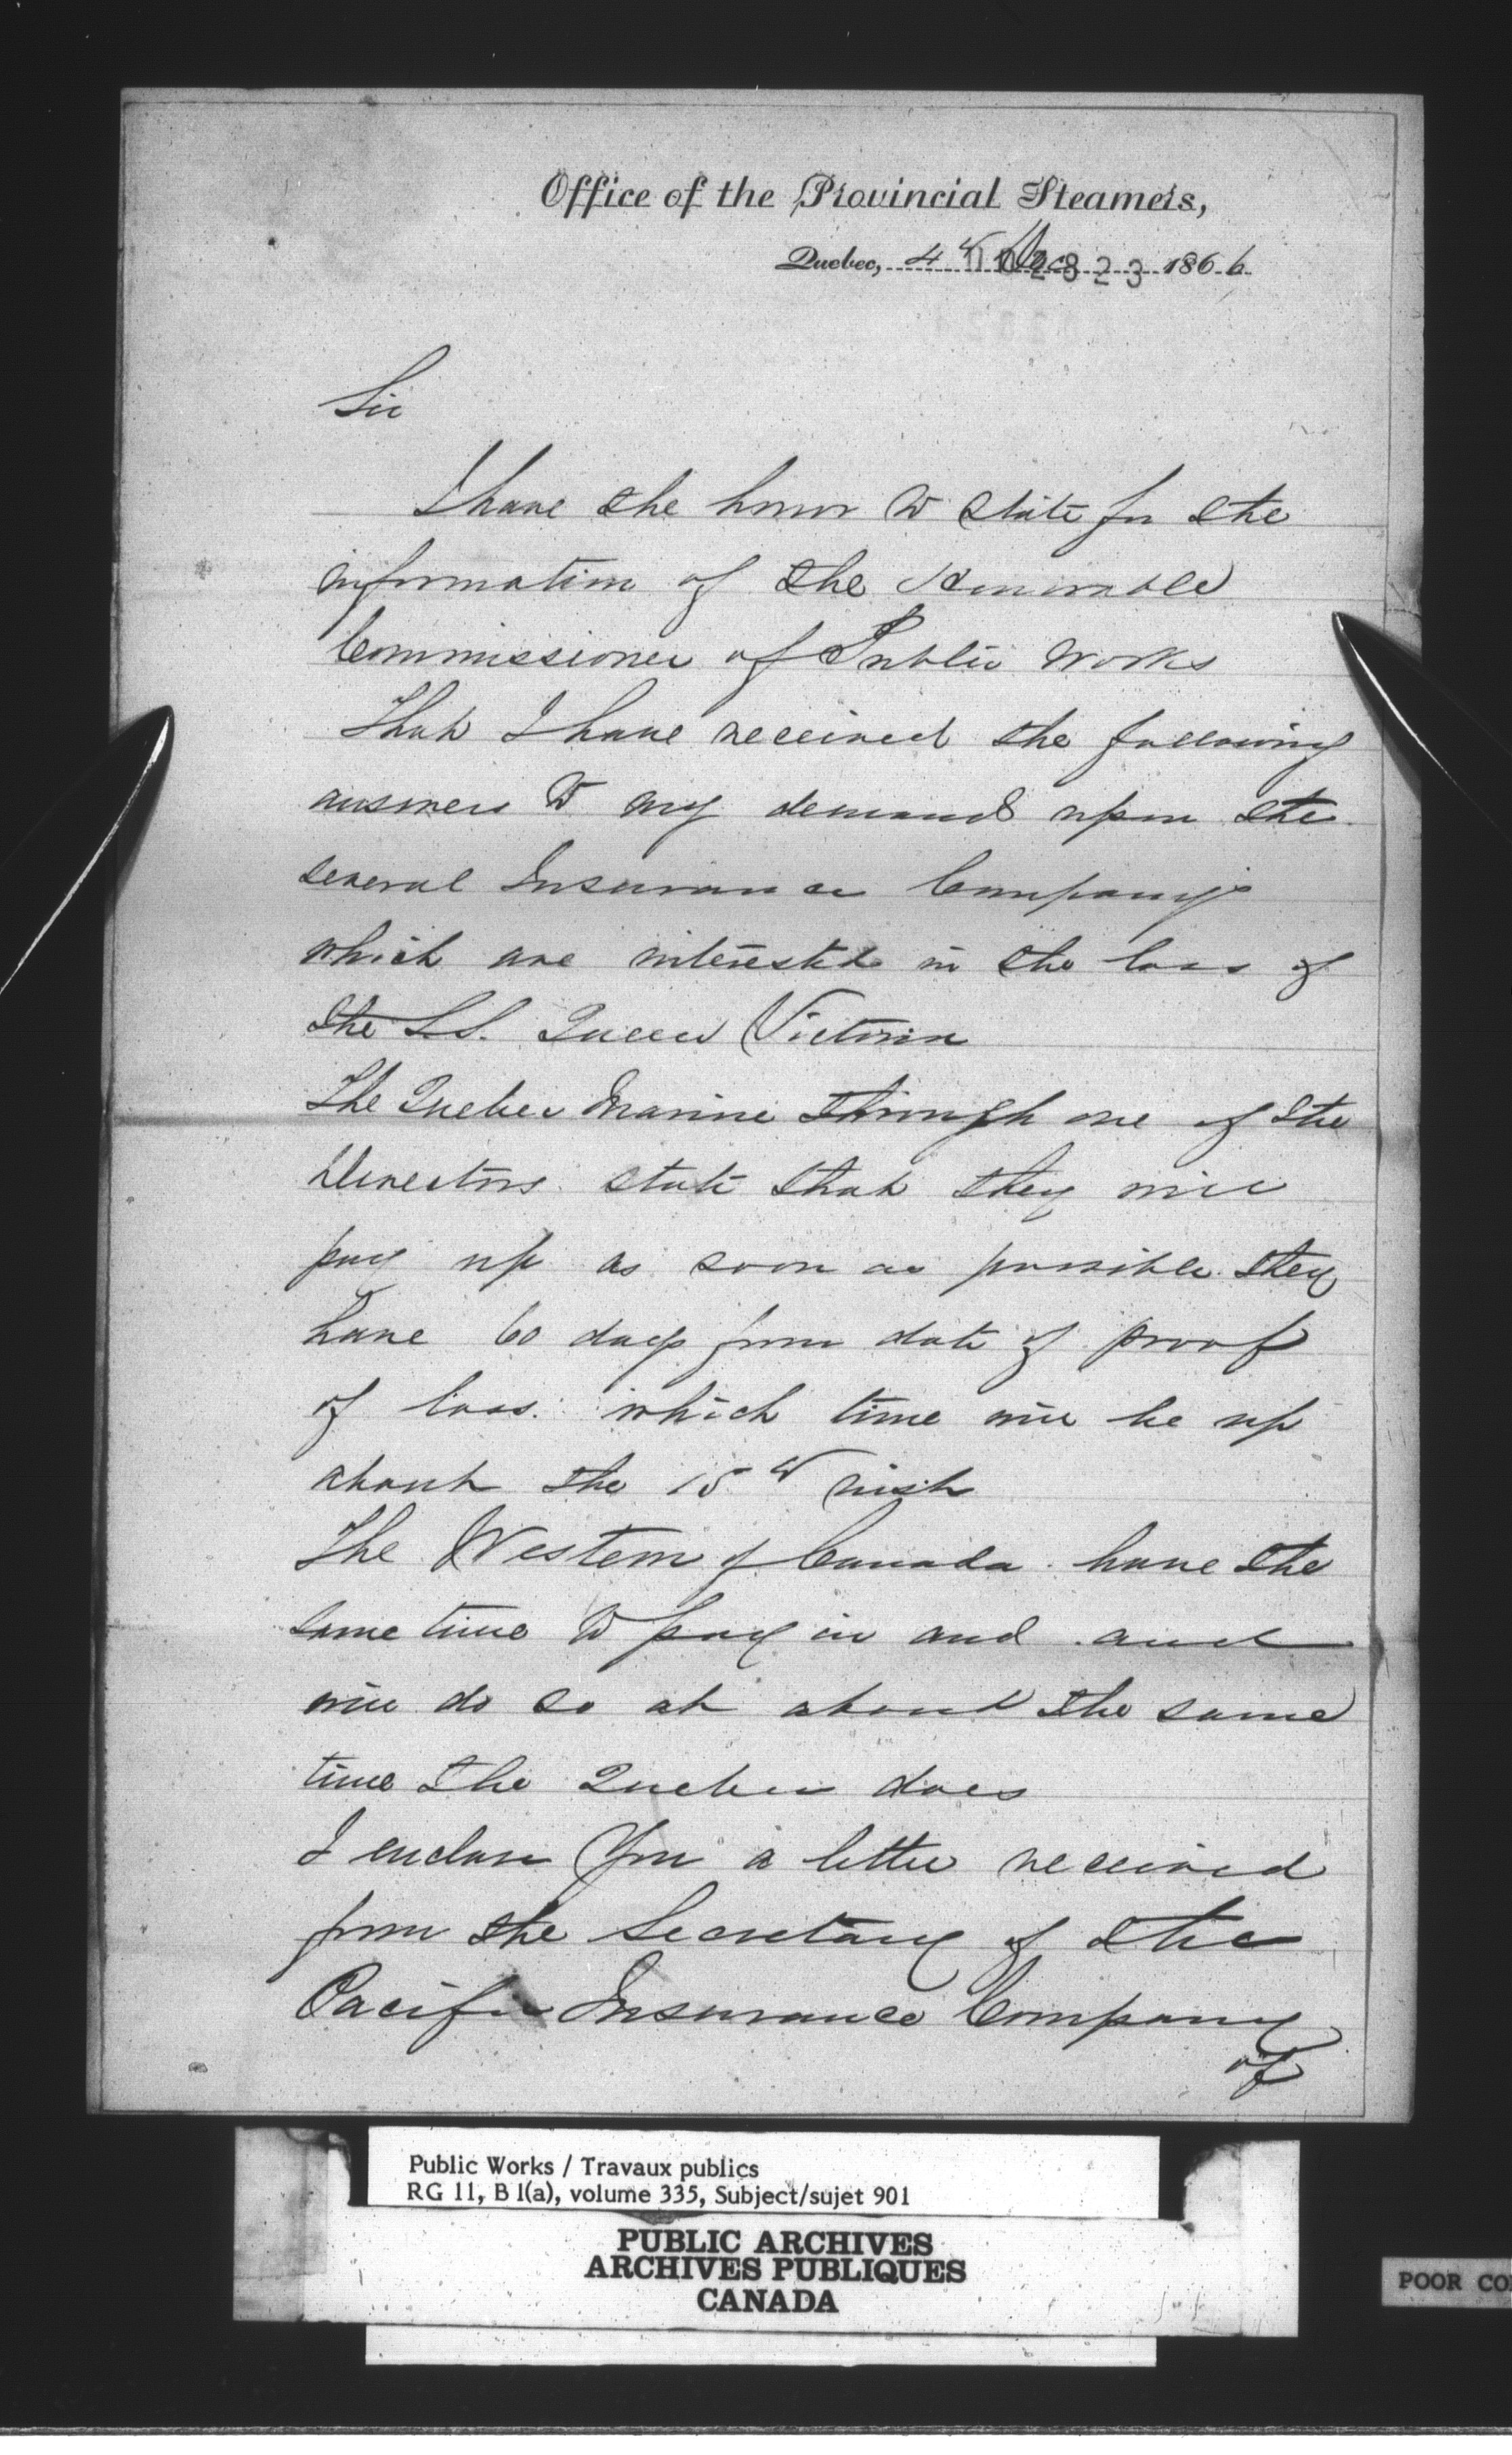 Office of the Provincial Steamers,
Quebec, 4th Dec 1866
Sir
I have the honor to state for the
information of the Honorable
Commissioner of Public Works
That I have received the following
answers to my demands upon the
several Insurance Companys
which are interested in the loss of
the S.S. Queen Victoria
The Quebec Marine through one of the
Directors state that they will
pay up as soon as possible they
have 60 days from date of proof
of loss. which time will be up
about the 15th inst
The Western of Canada have the
same time to pay in and and
will do so at about the same
time the Quebec does
I enclose you a letter received
from the Secretary of the
Pacific Insurance Company
of
Public Works / Travaux publics
RG 11, B 1(a), volume 335, Subject/sujet 901
PUBLIC ARCHIVES
ARCHIVES PUBLIQUES
CANADA
POOR CO